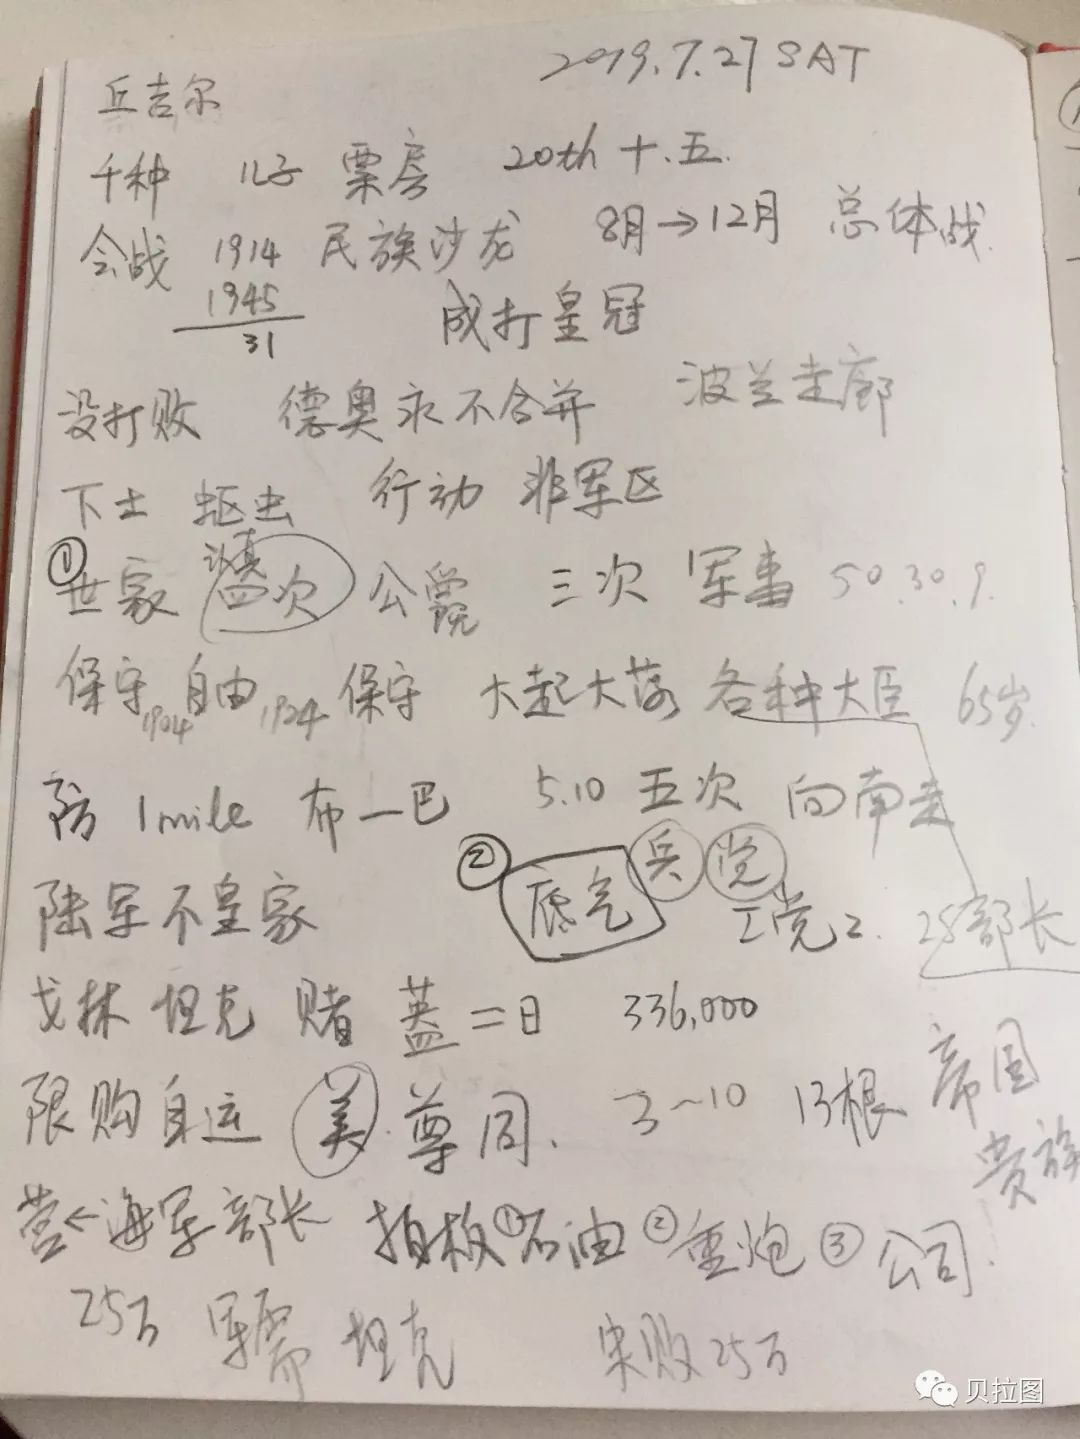 2019.7.27 SAT
丘吉尔
千种 儿子 票房 20th 十.五.
会战 1914 民族沙龙 8月→12月 总体战.
1945
31
成打皇冠
没打败 德奥永不合并 波兰走廊
下士 蛔虫 行动 非军区
认真
①世家 四次 公爵 三次 军事 50.30.9.
保守 1904 自由 1924 保守 大起大落 各种大臣 65岁.
防 1mile 布一巴 5.10 五次 向南走
陆军不皇家 ② 底气 兵 党
工党2. 25部长
戈林 坦克 赌 盖=日 336,000
限购自运 美. 尊同. 3~10 13根 帝国
贵族
营←海军部长 拍板①石油②重炮③公司.
25万 军需 坦克 失败25万
贝拉图